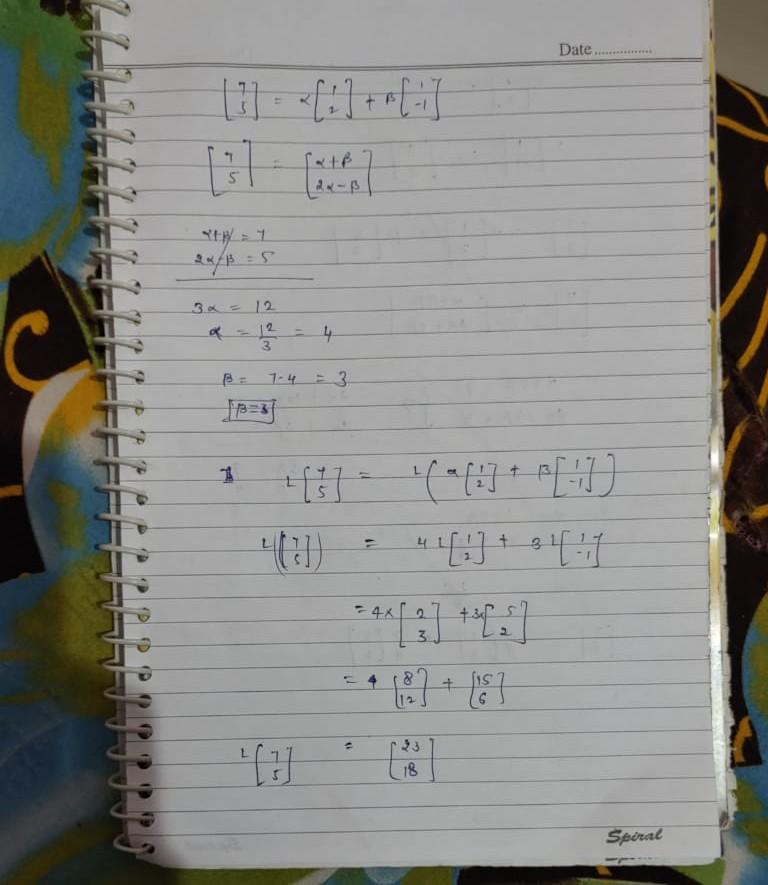 Date ...............
[7 5] = α[1 2] + β[1 -1]
[7 5] = [α+β 2α-β]
α+β = 7
2α-β = 5
3α = 12
α = 12/3 = 4
β = 7-4 = 3
β=3
L[7 5] = L(α[1 2] + β[1 -1])
L([7 5]) = 4 L[1 2] + 3 L[1 -1]
= 4×[2 3] + 3×[5 2]
= [8 12] + [15 6]
L[7 5] = [23 18]
Spiral